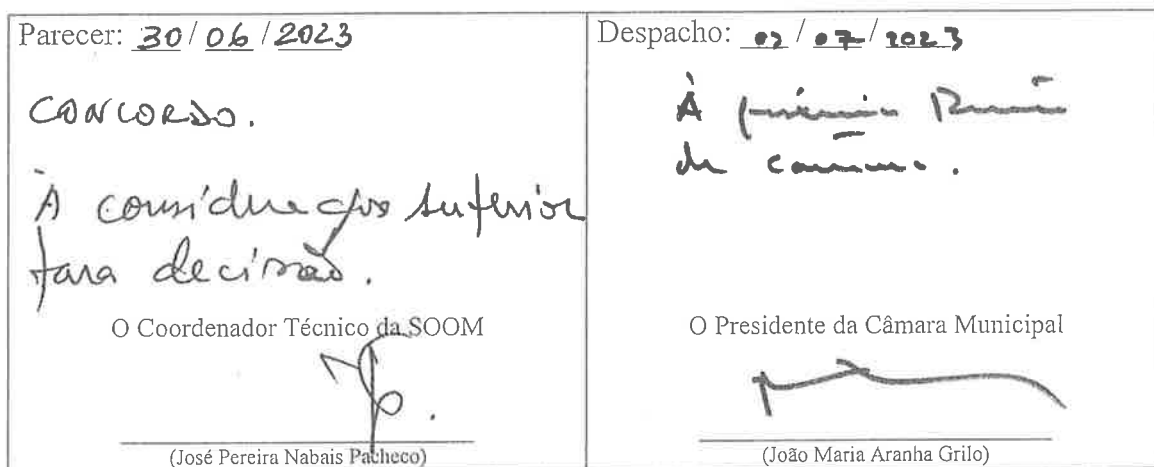 Parecer: 30/06/2023
CONCORDO.
À consideração superior
para decisão.
O Coordenador Técnico da SOOM
(José Pereira Nabais Pacheco)
Despacho: 03/07/2023
À próxima Reunião
de Câmara.
O Presidente da Câmara Municipal
(João Maria Aranha Grilo)